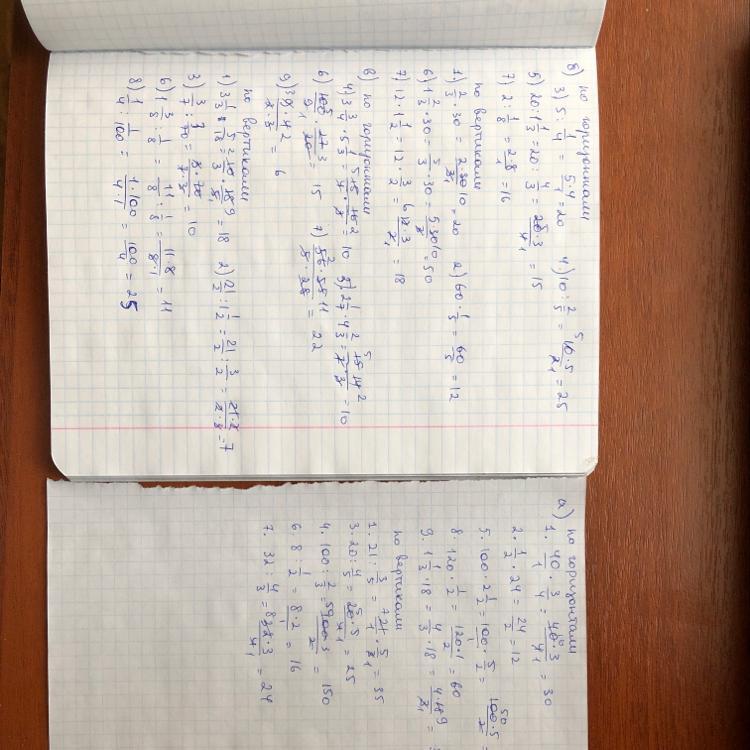 б) по горизонтали
3) 5 : 1/4 = 5·4/1 = 20 4) 10 : 2/5 = 10·5/2 = 25
5) 20 : 1 1/3 = 20 : 4/3 = 20·3/4 = 15
7) 2 : 1/8 = 2·8/1 = 16
по вертикали
1) 2/3 · 30 = 2·30/3 = 20 2) 60 · 1/5 = 60/5 = 12
6) 1 2/3 · 30 = 5/3 · 30 = 5·30/3 = 50
7) 12 · 1 1/2 = 12 · 3/2 = 12·3/2 = 18
в) по горизонтали
4) 3 3/4 · 5 1/3 = 15/4 · 16/3 = 10 5) 2 1/7 · 4 2/3 = 15·14/7·3 = 10
6) 15
7) 22
9) = 6
по вертикали
= 18 2) 21/2 : 1 1/2 = 21/2 : 3/2 = 21·2/2·3 = 7
3) 3/7 = 10
6) 1 3/8 : 1/8 = 11/8 : 1/8 = 11·8/8·1 = 11
8) 1/4 : 1/100 = 1·100/4·1 = 100/4 = 25
а) по горизонтали
1. 40/1 · 3/4 = 40·3/4 = 30
2. 1/2 · 24 = 24/2 = 12
5. 100 · 2 1/2 = 100/1 · 5/2 = 100·5/2 =
8. 120 · 1/2 = 120·1/2 = 60
9. 1 1/3 · 18 = 4/3 · 18 = 4·18/3 =
по вертикали
1. 21 : 3/5 = 21/1 · 5/3 = 35
3. 20 : 4/5 = 20·5/4 = 25
4. 100 : 2/3 = 100·3/2 = 150
6. 8 : 1/2 = 8·2/1 = 16
7. 32 : 4/3 = 32·3/4 = 24